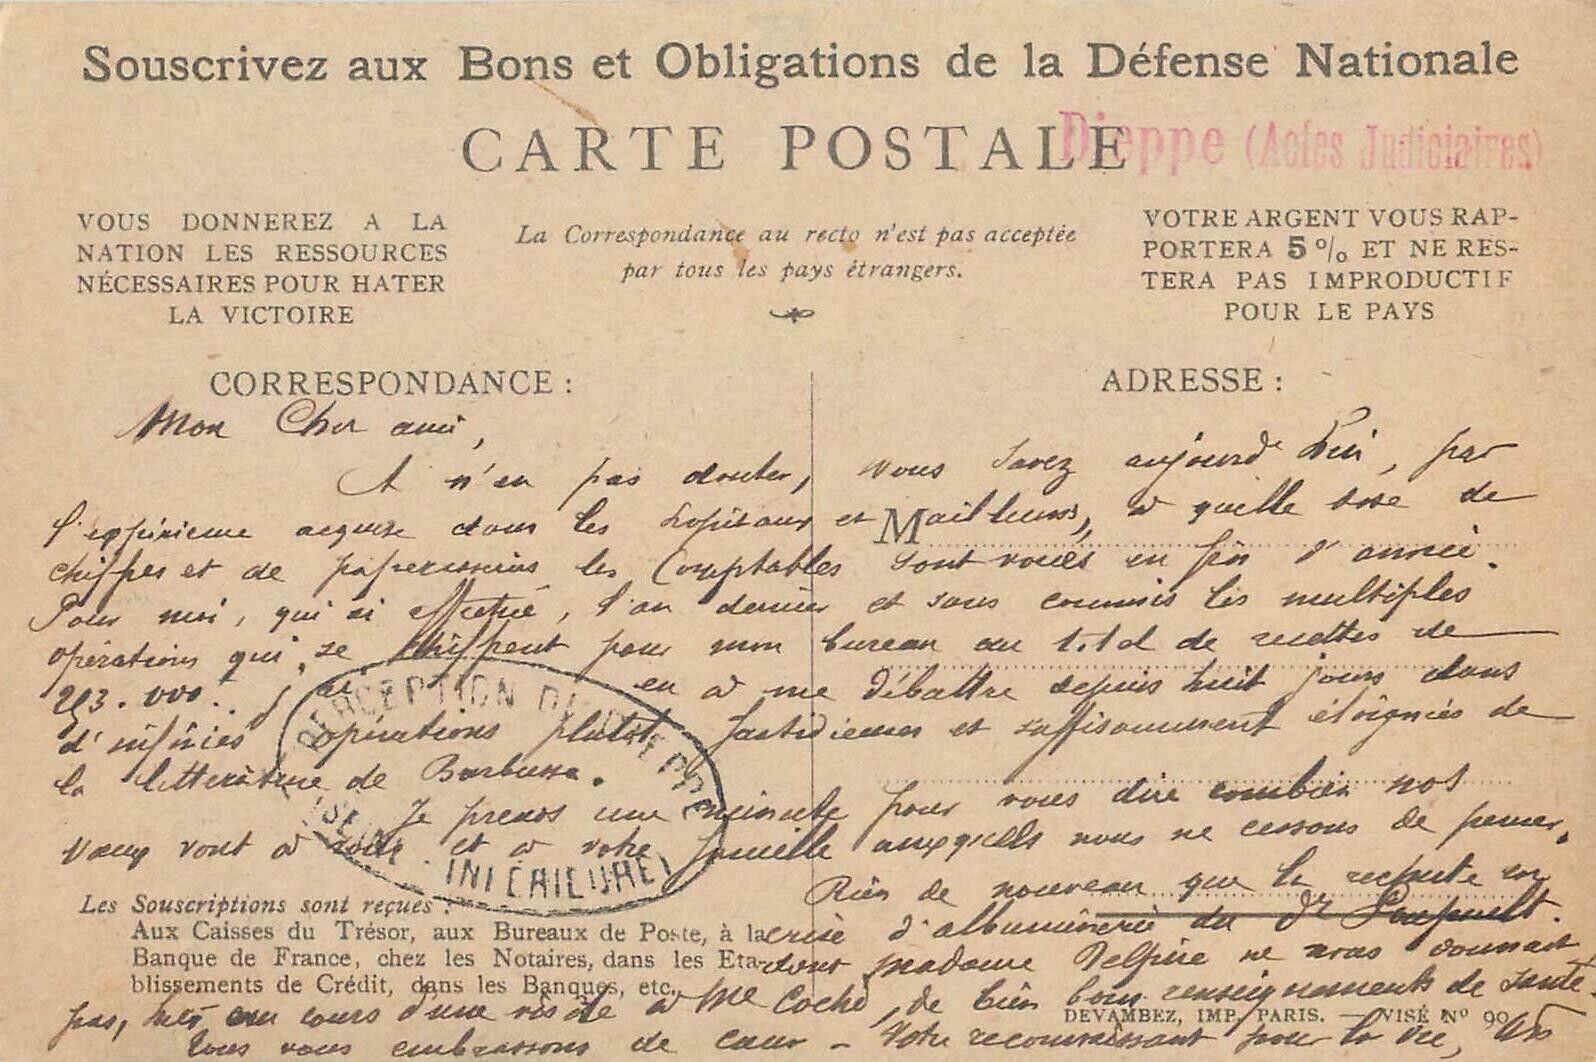 Souscrivez aux Bons et Obligations de la Défense Nationale
CARTE POSTALE
Dieppe (Actes Judiciaires)
VOUS DONNEREZ A LA
NATION LES RESSOURCES
NÉCESSAIRES POUR HATER
LA VICTOIRE
La Correspondance au recto n'est pas acceptée
par tous les pays étrangers.
VOTRE ARGENT VOUS RAP-
PORTERA 5 % ET NE RES-
TERA PAS IMPRODUCTIF
POUR LE PAYS
CORRESPONDANCE :
ADRESSE :
Mon Cher ami,
A n'en pas douter, vous savez aujourd'hui, par
l'expérience acquise dans les hopitaux et M ailleurs, à quelle dose de
chiffres et de paperasseries les Comptables sont voués en fin d'année.
Pour moi, qui ai effectué, l'an dernier et sans commis les multiples
opérations qui se chiffrent pour mon bureau au total de recettes de
293.000. j'ai en à me débattre depuis huit jours dans
d'infinies opérations plutôt fastidieuses et suffisamment éloignées de
la littérature de Barbusse.
Je prends une minute pour vous dire combien nos
vœux vont à vous et à votre famille auxquels nous ne cessons de penser.
Rien de nouveau que la rechute en
crise d'albuminerie du Dr
dont madame Delpière ne nous donnait
pas, hier au cours d'une visite à Me Coche, de bien bons renseignements de santé.
Tous vous embrassons de cœur - Votre reconnaissant pour la vie,
PERCEPTION DE DIEPPE
(SE INFÉRIEURE)
Les Souscriptions sont reçues :
Aux Caisses du Trésor, aux Bureaux de Poste, à la
Banque de France, chez les Notaires, dans les Eta-
blissements de Crédit, dans les Banques, etc.
DEVAMBEZ, IMP. PARIS. — VISÉ N° 90